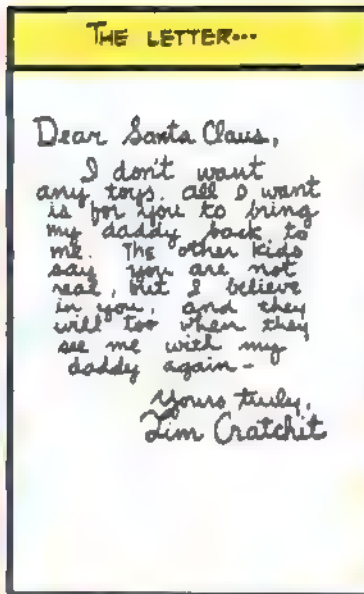 THE LETTER...
Dear Santa Claus,
I don't want
any toys. all I want
is for you to bring
my daddy back to
me. The other kids
say you are not
real, but I believe
in you, and they
will too when they
see me with my
daddy again -
Yours truly,
Tim Cratchit